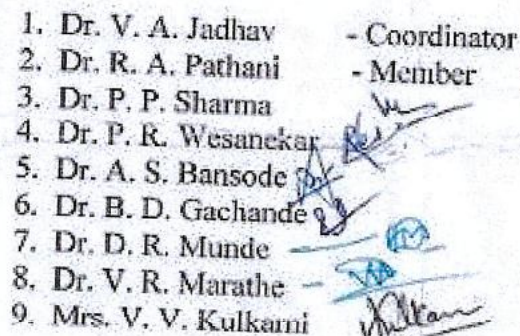 1. Dr. V. A. Jadhav - Coordinator
2. Dr. R. A. Pathani - Member
3. Dr. P. P. Sharma
4. Dr. P. R. Wesanekar
5. Dr. A. S. Bansode
6. Dr. B. D. Gachande
7. Dr. D. R. Munde
8. Dr. V. R. Marathe
9. Mrs. V. V. Kulkarni